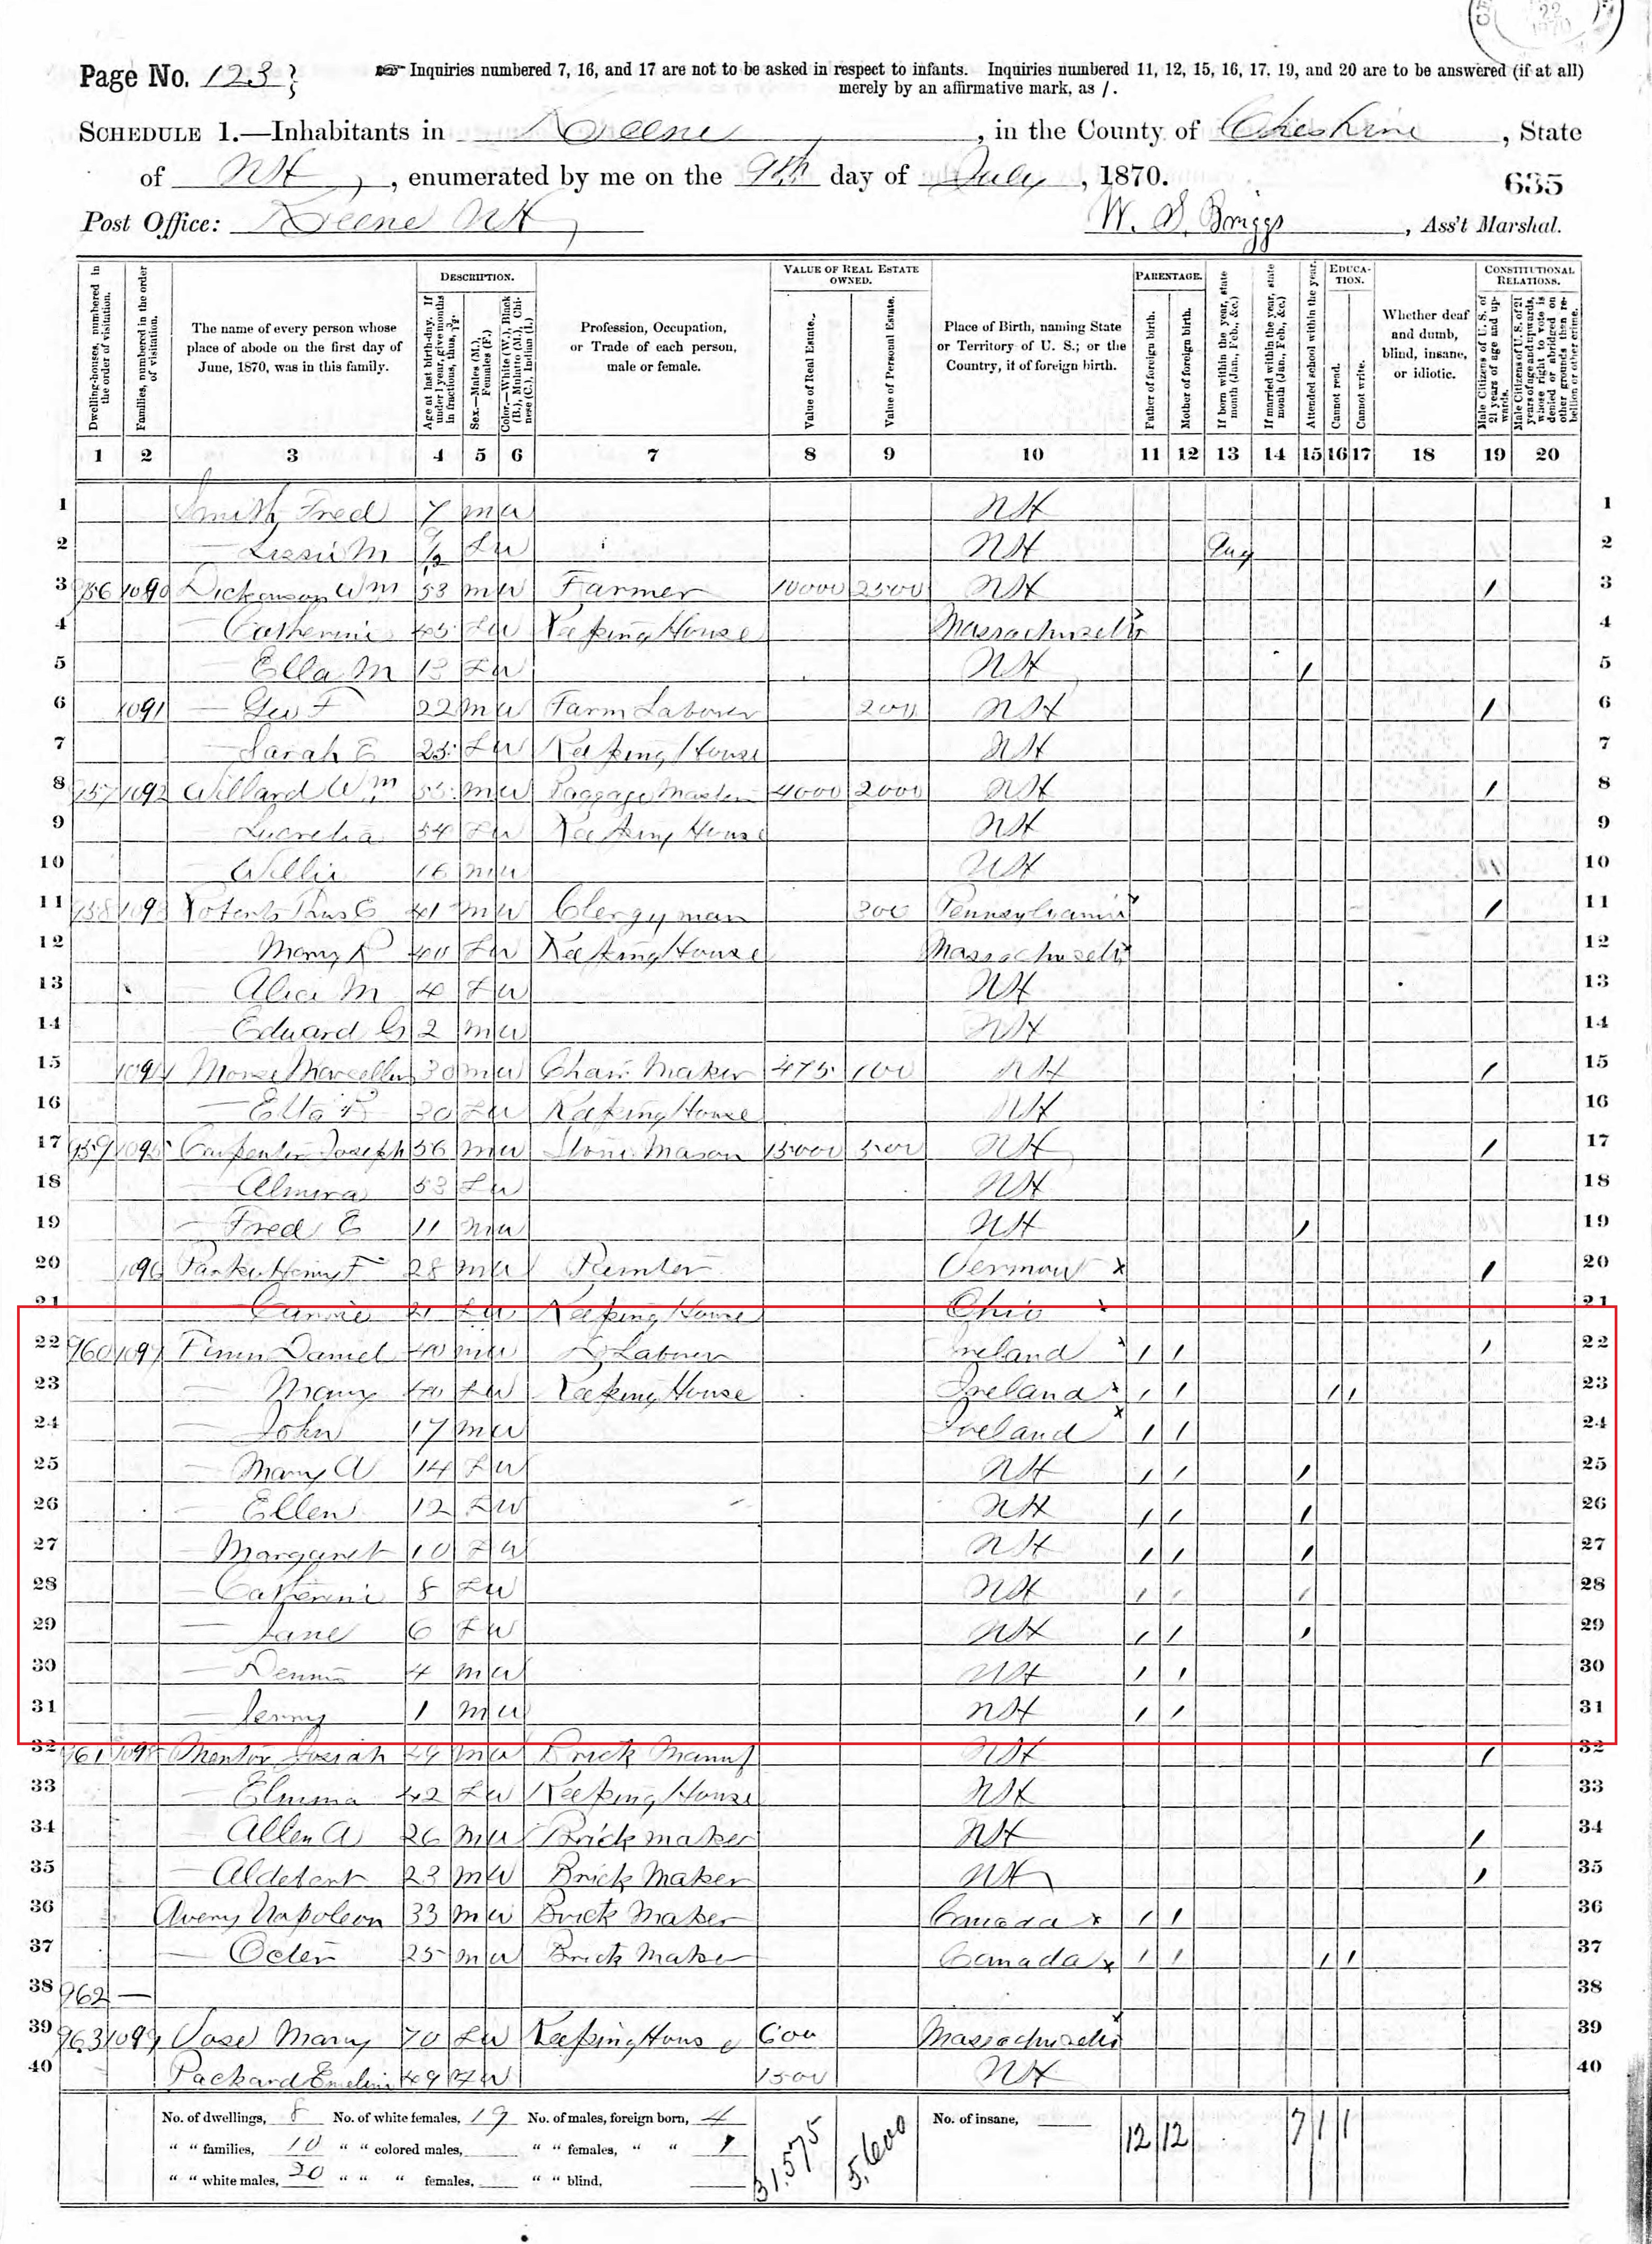 Page No. 123
☞ Inquiries numbered 7, 16, and 17 are not to be asked in respect to infants. Inquiries numbered 11, 12, 15, 16, 17, 19, and 20 are to be answered (if at all)
merely by an affirmative mark, as /.
22
1870
SCHEDULE 1.—Inhabitants in Keene, in the County of Cheshire, State
of NH, enumerated by me on the 9th day of July, 1870.
635
Post Office: Keene NH
W. S. Briggs, Ass't Marshal.
DESCRIPTION.
VALUE OF REAL ESTATE OWNED.
PARENTAGE.
EDUCATION.
CONSTITUTIONAL RELATIONS.
Dwelling-houses, numbered in the order of visitation.
Families, numbered in the order of visitation.
The name of every person whose place of abode on the first day of June, 1870, was in this family.
Age at last birth-day. If under 1 year, give months in fractions, thus, 3/12.
Sex.—Males (M.), Females (F.)
Color.—White (W.), Black (B.), Mulatto (M.), Chinese (C.), Indian (I.)
Profession, Occupation, or Trade of each person, male or female.
Value of Real Estate.
Value of Personal Estate.
Place of Birth, naming State or Territory of U. S.; or the Country, if of foreign birth.
Father of foreign birth.
Mother of foreign birth.
If born within the year, state month (Jan., Feb., &c.)
If married within the year, state month (Jan., Feb., &c.)
Attended school within the year.
Cannot read.
Cannot write.
Whether deaf and dumb, blind, insane, or idiotic.
Male Citizens of U. S. of 21 years of age and upwards.
Male Citizens of U. S. of 21 years of age and upwards, whose right to vote is denied or abridged on other grounds than rebellion or other crime.
1 2 3 4 5 6 7 8 9 10 11 12 13 14 15 16 17 18 19 20
1 Smith Fred 7 m w NH 1
2 — Lizzie M 9/12 F w NH Aug 2
3 956 1090 Dickenson Wm 53 m w Farmer 10000 2500 NH / 3
4 — Catherine 45 F w Keeping House Massachusetts 4
5 — Ella M 13 F w NH / 5
6 1091 — Geo F 22 m w Farm Laborer 200 NH / 6
7 — Sarah E 25 F w Keeping House NH 7
8 957 1092 Willard Wm 55 m w Baggage Master 4000 2000 NH / 8
9 — Lucretia 54 F w Keeping House NH 9
10 — Willie 16 m w NH 10
11 958 1093 Roberts Thos E 41 m w Clergyman 300 Pennsylvania / 11
12 — Mary P 40 F w Keeping House Massachusetts 12
13 — Alice M 4 F w NH 13
14 — Edward G 2 m w NH 14
15 1094 Morse Marcellus 30 m w Chair Maker 475 100 NH / 15
16 — Etta 30 F w Keeping House NH 16
17 959 1095 Carpenter Joseph 56 m w Stone Mason 15000 500 NH / 17
18 — Almira 53 F w NH 18
19 — Fred E 11 m w NH / 19
20 1096 Parker Henry F 28 m w Vermont x / 20
21 — Carrie 21 F w Keeping House Ohio 21
22 960 1097 Finn Daniel 40 m w Laborer Ireland x / / / 22
23 — Mary 40 F w Keeping House Ireland x / / / / 23
24 — John 17 m w Ireland x / / 24
25 — Mary A 14 F w NH / / / 25
26 — Ellen 12 F w NH / / / 26
27 — Margaret 10 F w NH / / / 27
28 — Catherine 8 F w NH / / / 28
29 — Jane 6 F w NH / / / 29
30 — Dennis 4 m w NH / / 30
31 — Jerry 1 m w NH / / 31
32 961 1098 Josiah 49 m w Brick Manuf NH / 32
33 — Elmina 42 F w Keeping House NH 33
34 — Allen A 26 m w Brick maker NH / 34
35 — 23 m w Brick Maker NH / 35
36 Avery Napoleon 33 m w Brick Maker Canada x / / 36
37 — 25 m w Brick Maker Canada x / / / / 37
38 962 — 38
39 963 1099 Vose Mary 70 F w Keeping House 600 Massachusetts x 39
40 Packard Emeline 49 F w 1500 NH 40
No. of dwellings, 8 No. of white females, 19 No. of males, foreign born, 4 No. of insane,
" " families, 10 " " colored males, " " females, " " 1
" " white males, 20 " " " females, " " blind,
31,575 5,600 12 12 7 1 1